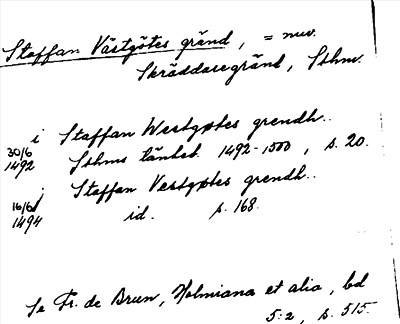 Staffan Västgötes gränd, = nuv.
Skräddaregränd, Sthm.
i Staffan Westgøtes grendh..
30/6 1492 Sthms tänkeb. 1492-1500, s. 20.
i Staffan Vestgøtes grendh..
16/6 1494 id. s. 168.
Se Fr. de Brun, Holmiana et alia, bd
5:2, s. 515.